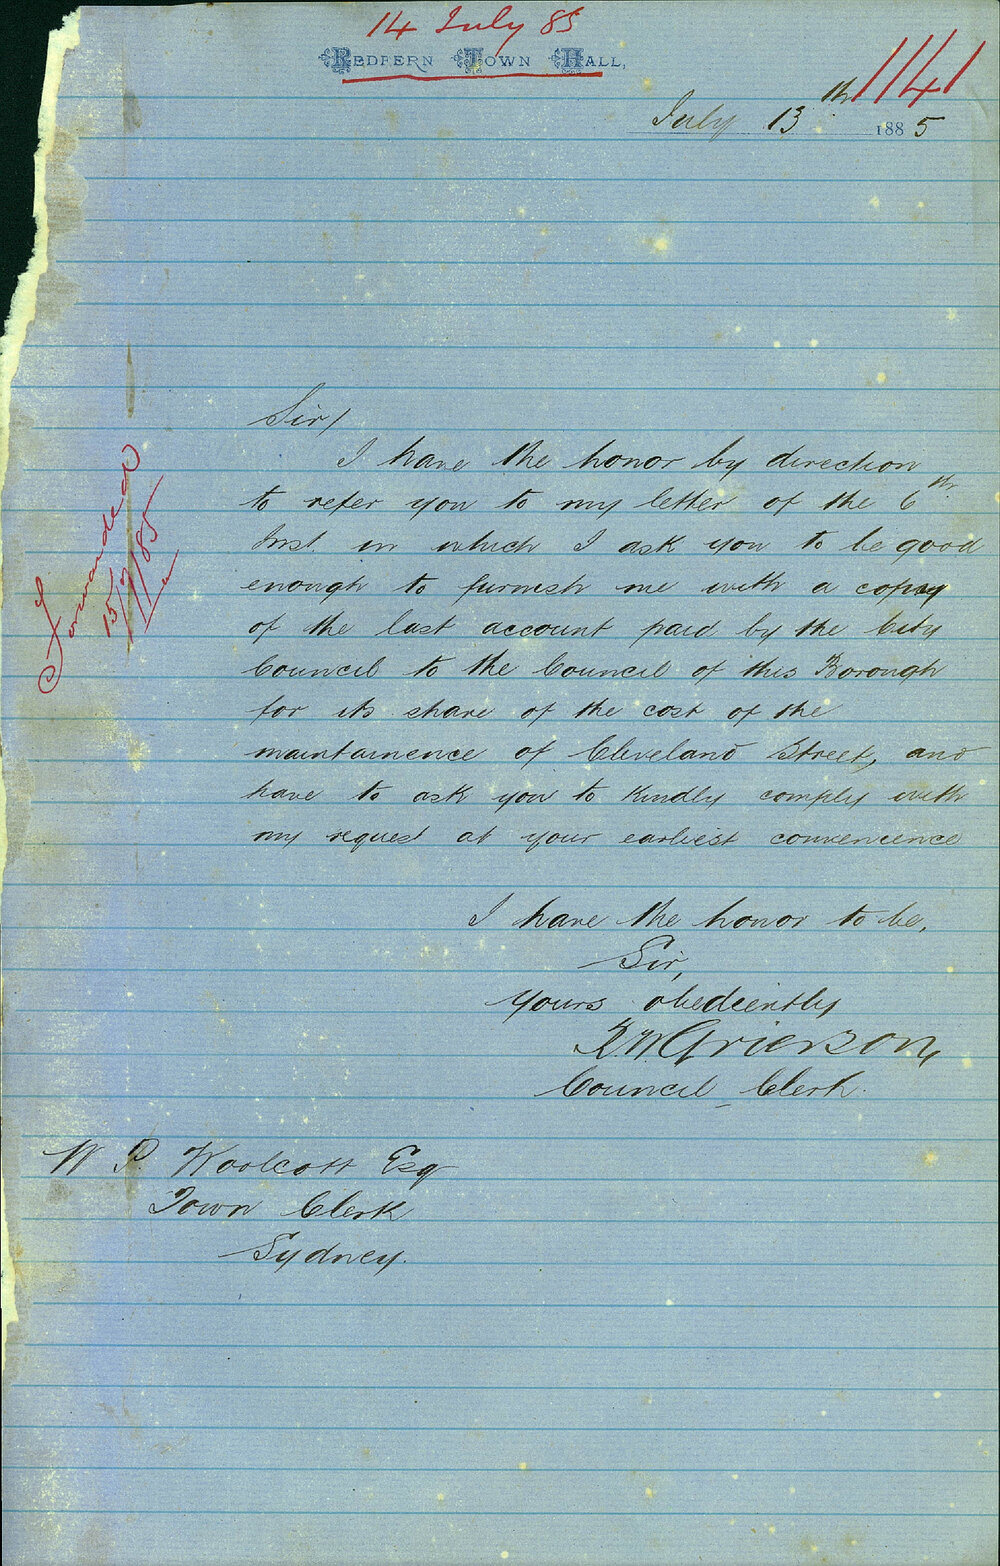 14 July 85
Redfern Town Hall,
1141
July 13th 1885
Sir/
I have the honor by direction
to refer you to my letter of the 6th
Inst. in which I ask you to be good
enough to furnish me with a copy
of the last account paid by the City
Council to the Council of this Borough
for its share of the cost of the
maintainence of Cleveland Street, and
have to ask you to kindly comply with
my request at your earliest convenience
I have the honor to be,
Sir,
Yours obediently
Grierson,
Council Clerk.
W P. Woolcott Esq
Town Clerk
Sydney.
Forwarded
15/7/85